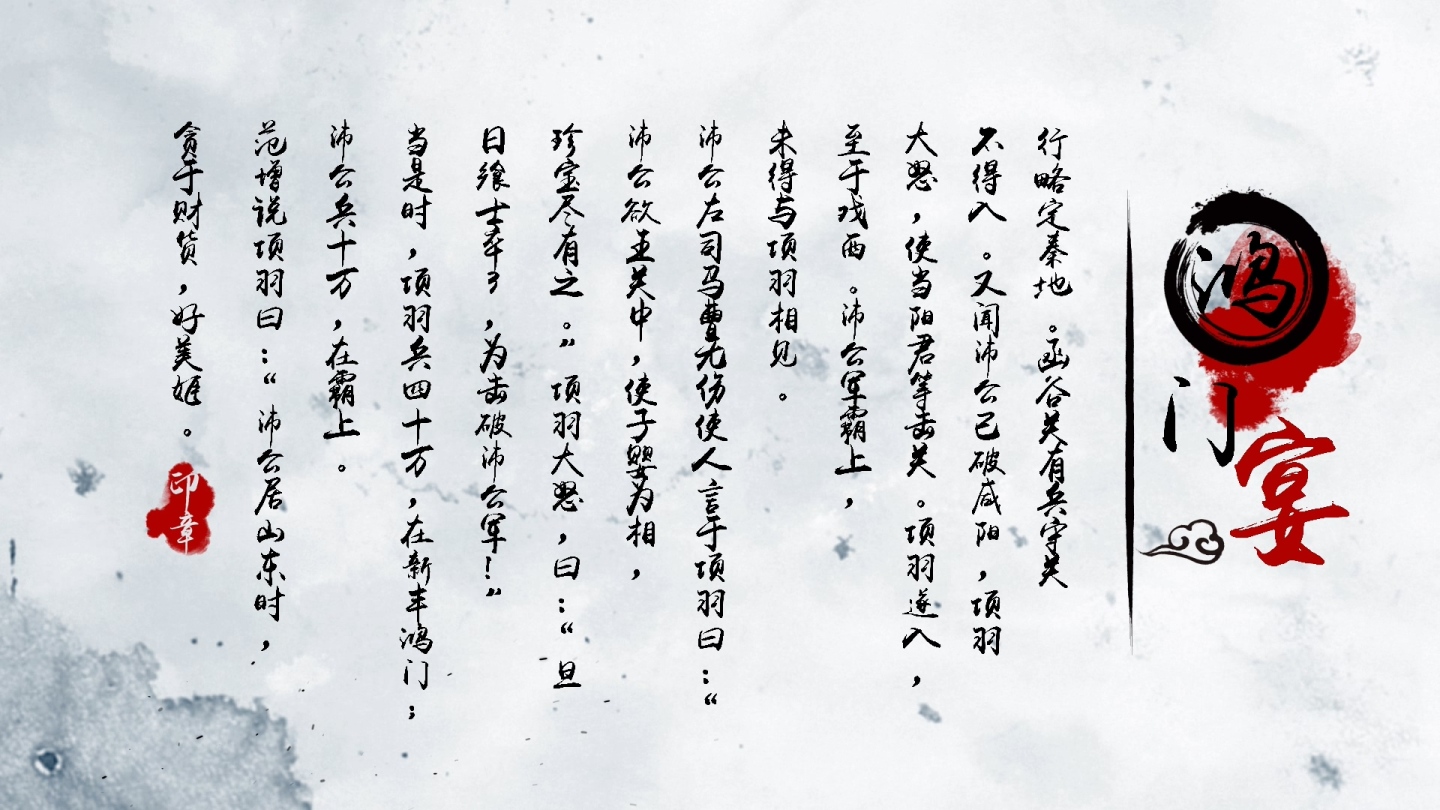 鸿门宴
行略定秦地。函谷关有兵守关
不得入。又闻沛公已破咸阳，项羽
大怒，使当阳君等击关。项羽遂入，
至于戏西。沛公军霸上，
未得与项羽相见。
沛公左司马曹无伤使人言于项羽曰：“
沛公欲王关中，使子婴为相，
珍宝尽有之。”项羽大怒，曰：“旦
日飨士卒了，为击破沛公军！”
当是时，项羽兵四十万，在新丰鸿门；
沛公兵十万，在霸上。
范增说项羽曰：“沛公居山东时，
贪于财货，好美姬。
印章